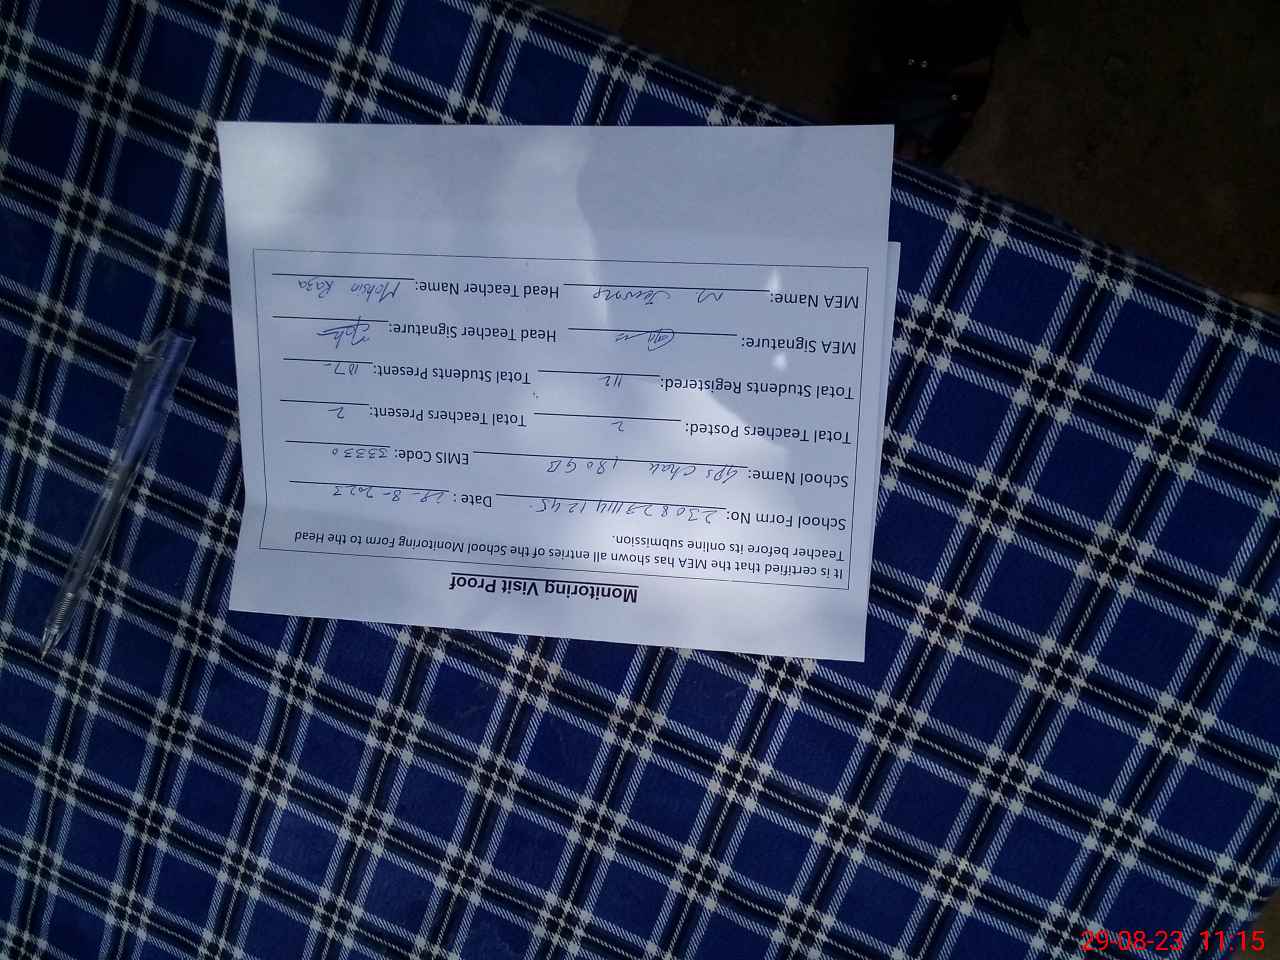 Monitoring Visit Proof
It is certified that the MEA has shown all entries of the School Monitoring Form to the Head
Teacher before its online submission.
School Form No: Date : 29-8-2023
School Name: GPS Chak 180 GB EMIS Code: 33330
Total Teachers Posted: 2 Total Teachers Present: 2
Total Students Registered: 112 Total Students Present: 107
MEA Signature: Head Teacher Signature:
MEA Name: M Head Teacher Name: Mohsin Raza
29-08-23 11:15